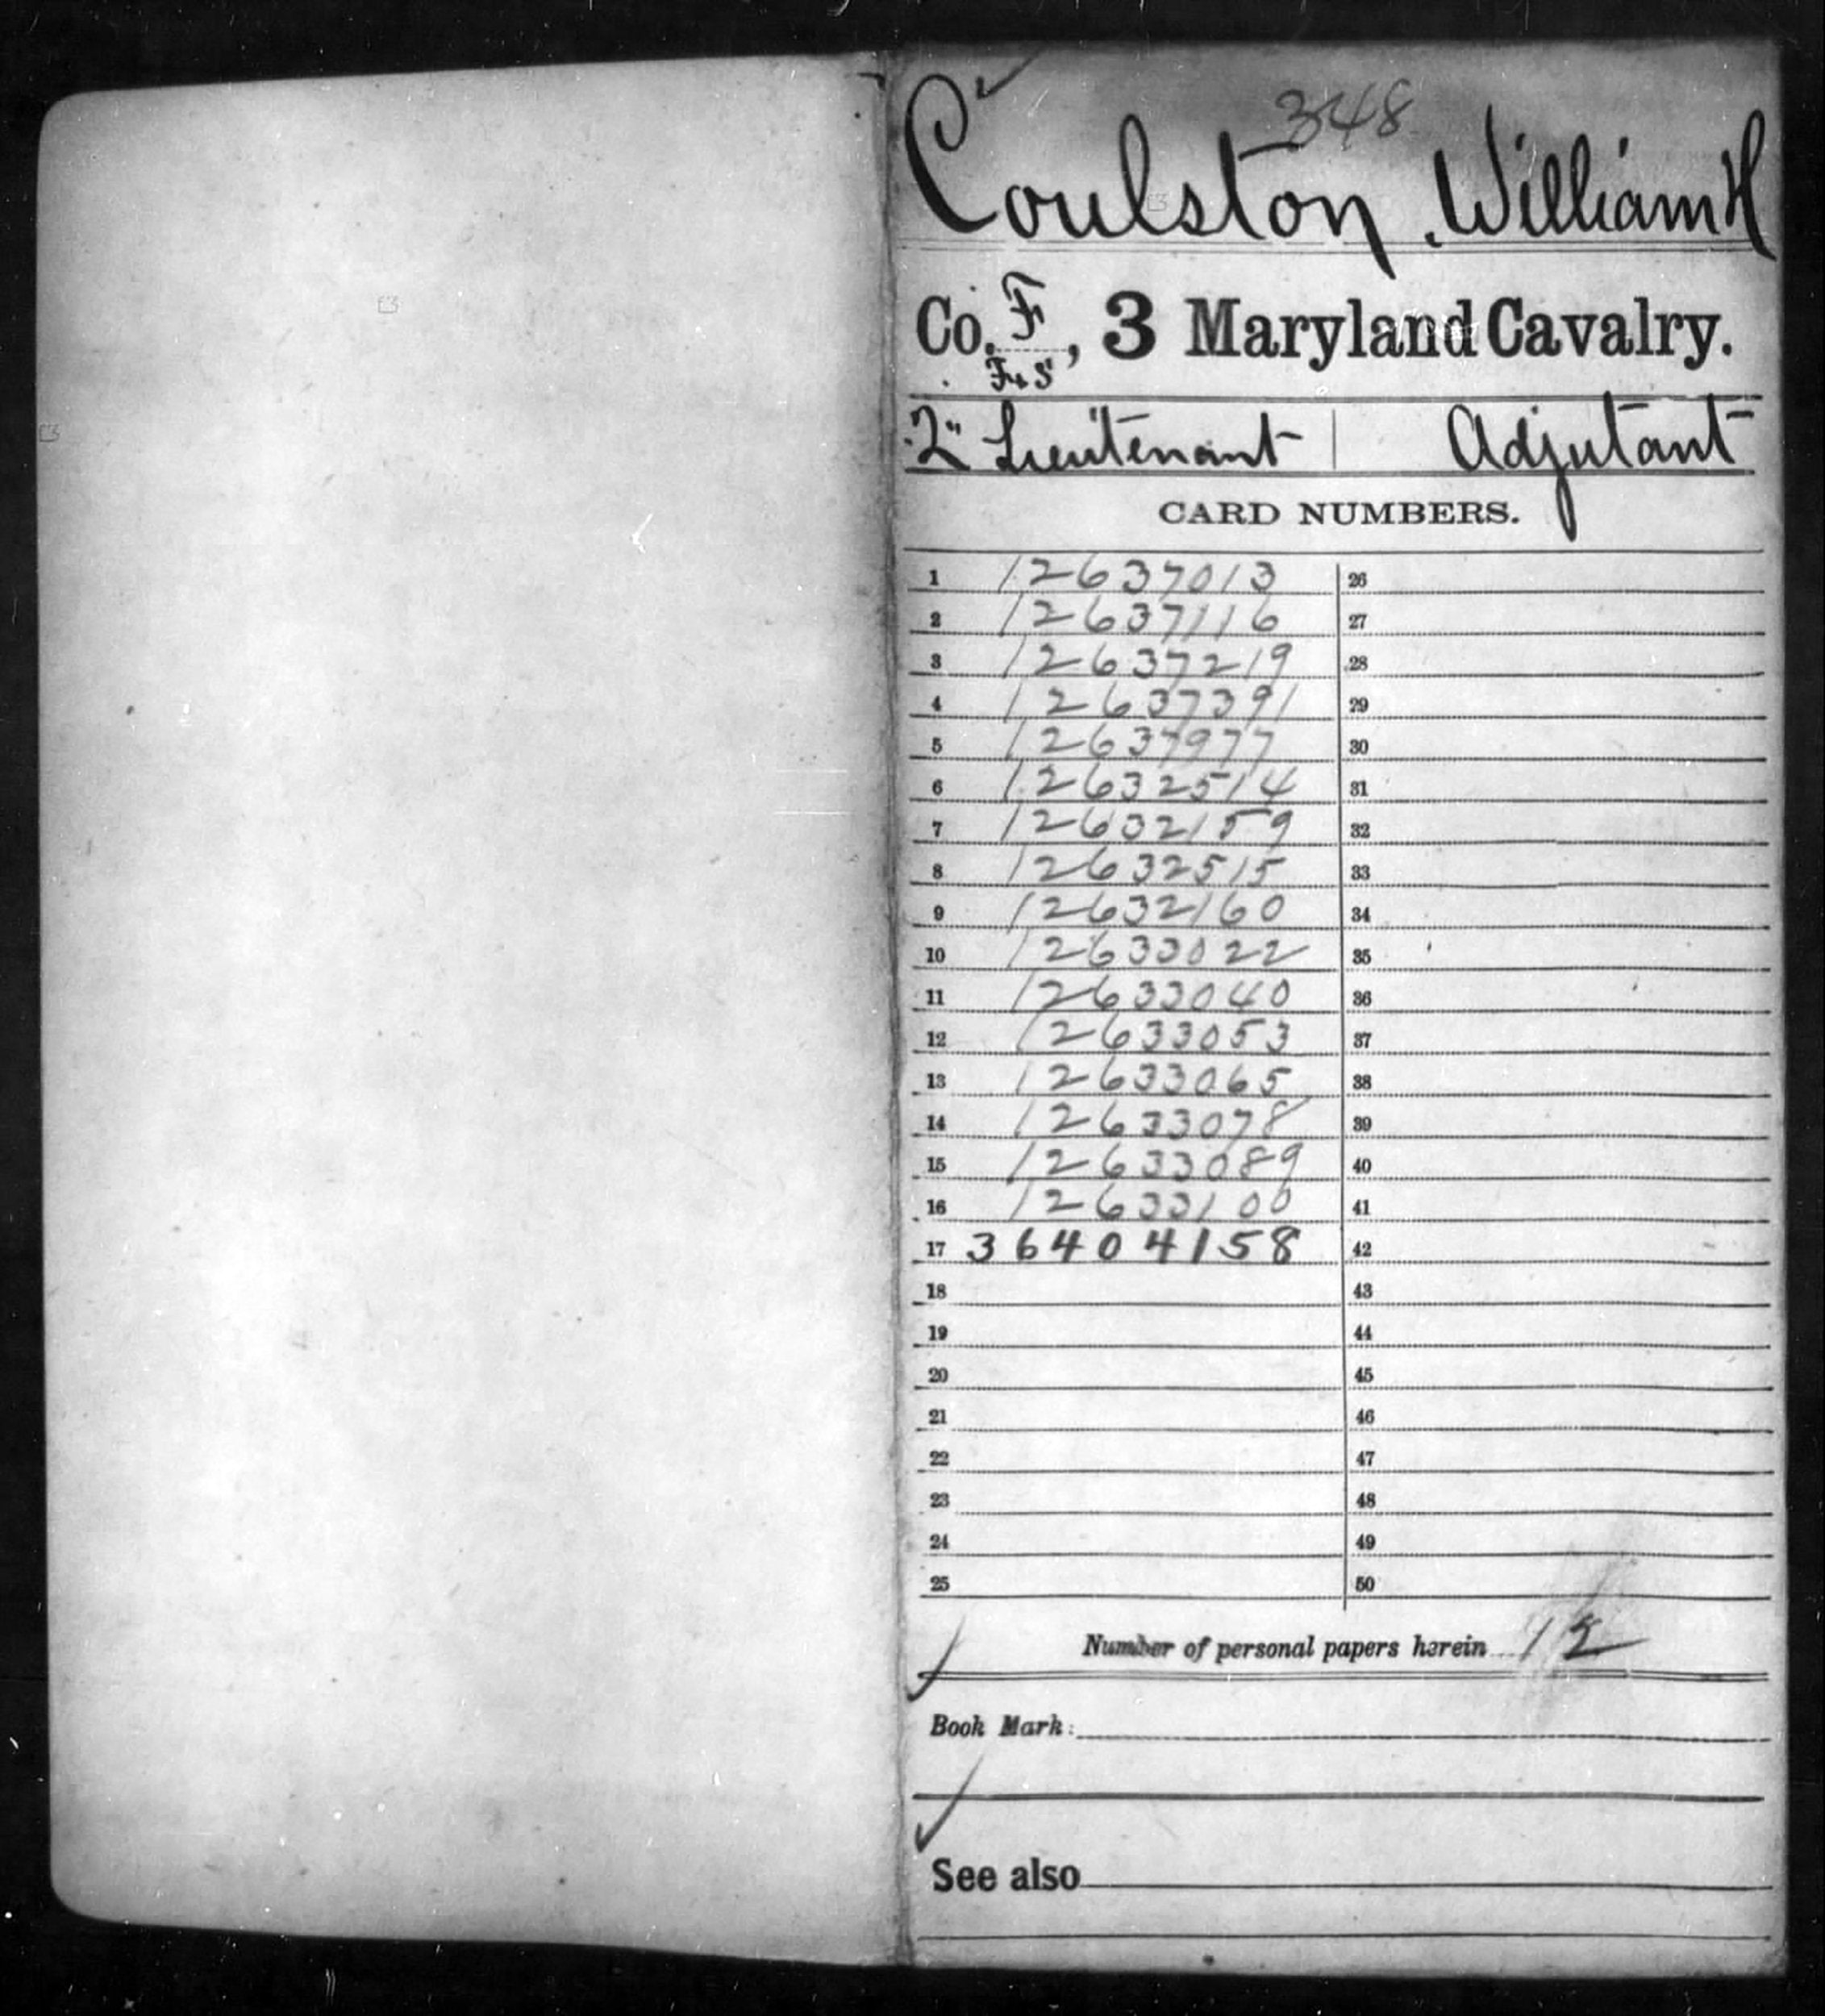 348
Coulston, William H
Co. F, 3 Maryland Cavalry.
F&S
2" Lieutenant | Adjutant
CARD NUMBERS.
1 12637013 26
2 12637116 27
3 12637219 28
4 12637391 29
5 12637977 30
6 12632514 31
7 12632159 32
8 12632515 33
9 12632160 34
10 12633022 35
11 12633040 36
12 12633053 37
13 12633065 38
14 12633078 39
15 12633089 40
16 12633100 41
17 36404158 42
18 43
19 44
20 45
21 46
22 47
23 48
24 49
25 50
Number of personal papers herein 12
Book Mark:
See also